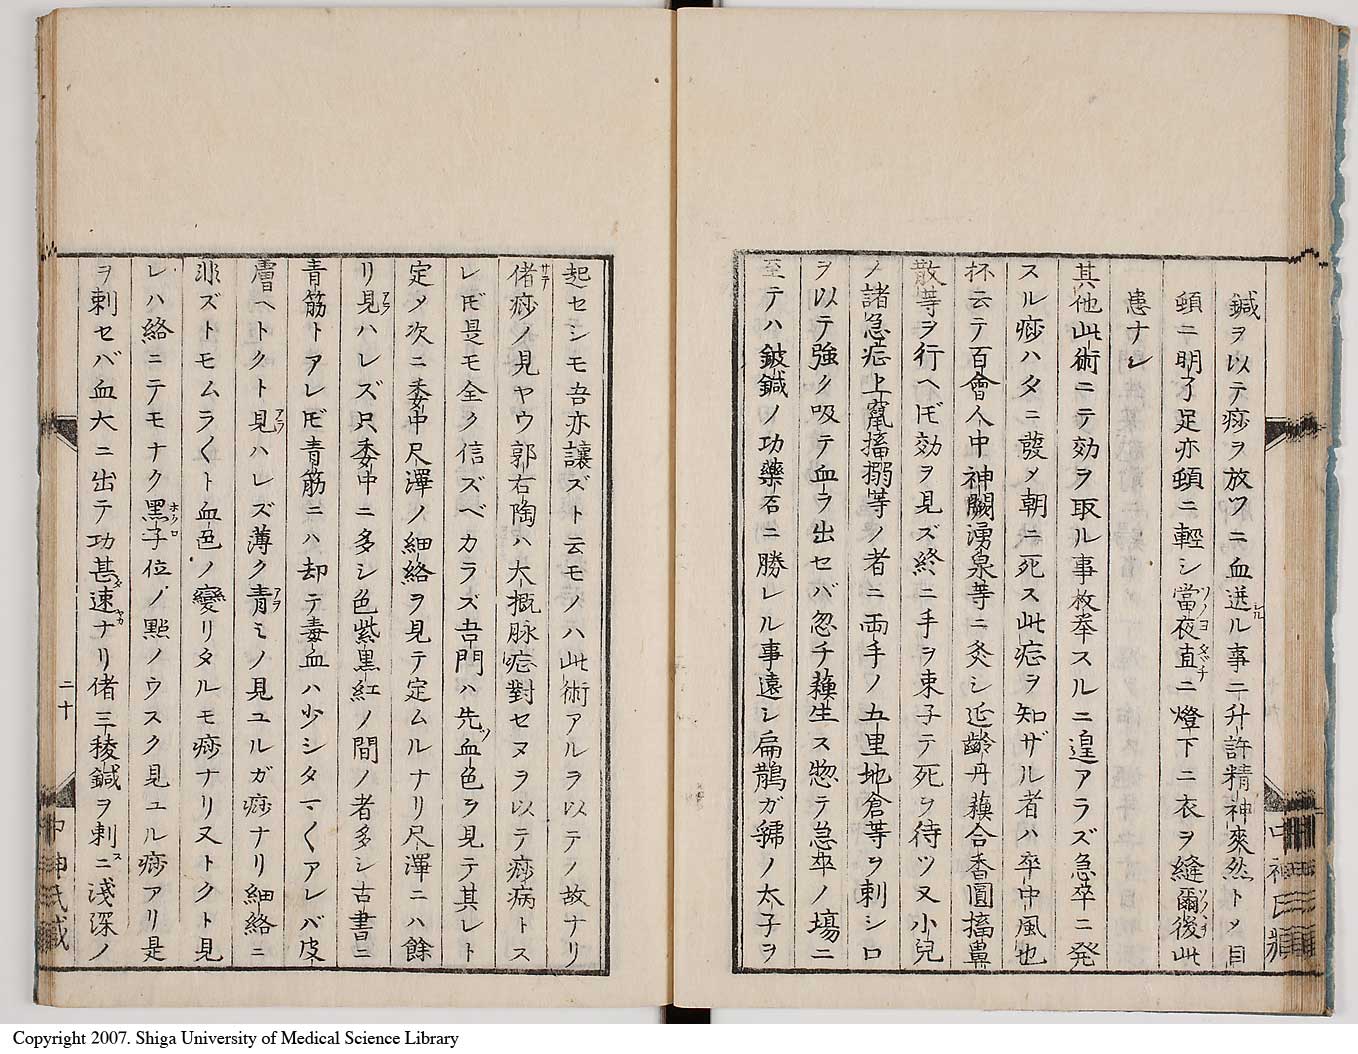 鍼ヲ以テ痧ヲ放ツニ血迸ル事二升許精神爽然トメ目
頓ニ明了足亦頓ニ輕シ當夜直ニ燈下ニ衣ヲ縫爾後此
患ナシ
其他此術ニテ効ヲ取ル事枚挙スルニ遑アラズ急卒ニ発
スル痧ハタニ發メ朝ニ死ス此症ヲ知ザル者ハ卒中風也
抔云テ百會人中神闕湧泉等ニ灸シ延齡丹蘓合香圓搐鼻
散等ヲ行ヘ𪜈効ヲ見ズ終ニ手ヲ束子テ死ヲ待ツ又小兒
ノ諸急症上竄搐搦等ノ者ニ両手ノ五里地倉等ヲ刺シ口
ヲ以テ強ク吸テ血ヲ出セバ忽チ蘓生ス惣テ急卒ノ塲ニ
至テハ鈹鍼ノ功藥石ニ勝レル事遠シ扁鵲ガ虢ノ太子ヲ
起セシモ吾亦讓ズト云モノハ此術アルヲ以テノ故ナリ
偖痧ノ見ヤウ郭右陶ハ大概脉症對セヌヲ以テ痧病トス
レ𪜈是モ全ク信ズベカラズ吾門ハ先血色ヲ見テ其レト
定メ次ニ委中尺澤ノ細絡ヲ見テ定ムルナリ尺澤ニハ餘
リ見ハレズ只委中ニ多シ色紫黒紅ノ間ノ者多シ古書ニ
青筋トアレ𪜈青筋ニハ却テ毒血ハ少シタマ〱アレバ皮
膚ヘトクト見ハレズ薄ク青ミノ見ユルガ痧ナリ細絡ニ
非ズトモムラ〱ト血色ノ變リタルモ痧ナリ又トクト見
レハ絡ニテモナク黒子位ノ點ノウスク見ユル痧アリ是
ヲ刺セバ血大ニ出テ功甚速ナリ偖三稜鍼ヲ刺ニ淺深ノ
二十